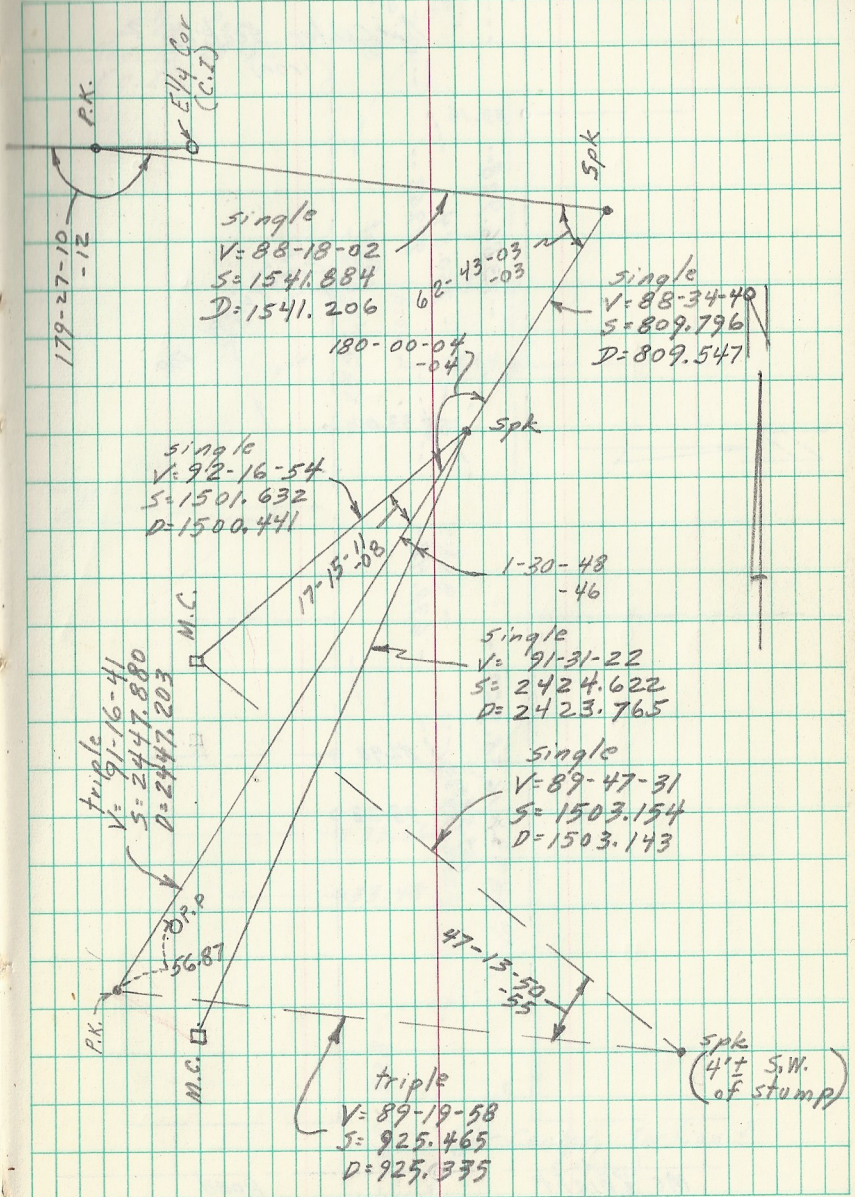 P.K.
E 1/4 Cor
(C.I)
Spk
179-27-10
-12
single
V=88-18-02
S=1541.884
D=1541.206
62-43-03
-03
single
V=88-34-40
S=809.796
D=809.547
180-00-04
-04
Spk
single
V=92-16-54
S=1501.632
D=1500.441
17-15-11
-08
1-30-48
-46
M.C.
single
V= 91-31-22
S= 2424.622
D= 2423.765
triple
V= 91-16-41
S=2447.880
D=2447.203
single
V=89-47-31
S=1503.154
D=1503.143
P.P
56.87
47-13-50
-55
P.K.
M.C.
spk
(4'± S.W.
of stump)
triple
V=89-19-58
S=925.465
D=925.335